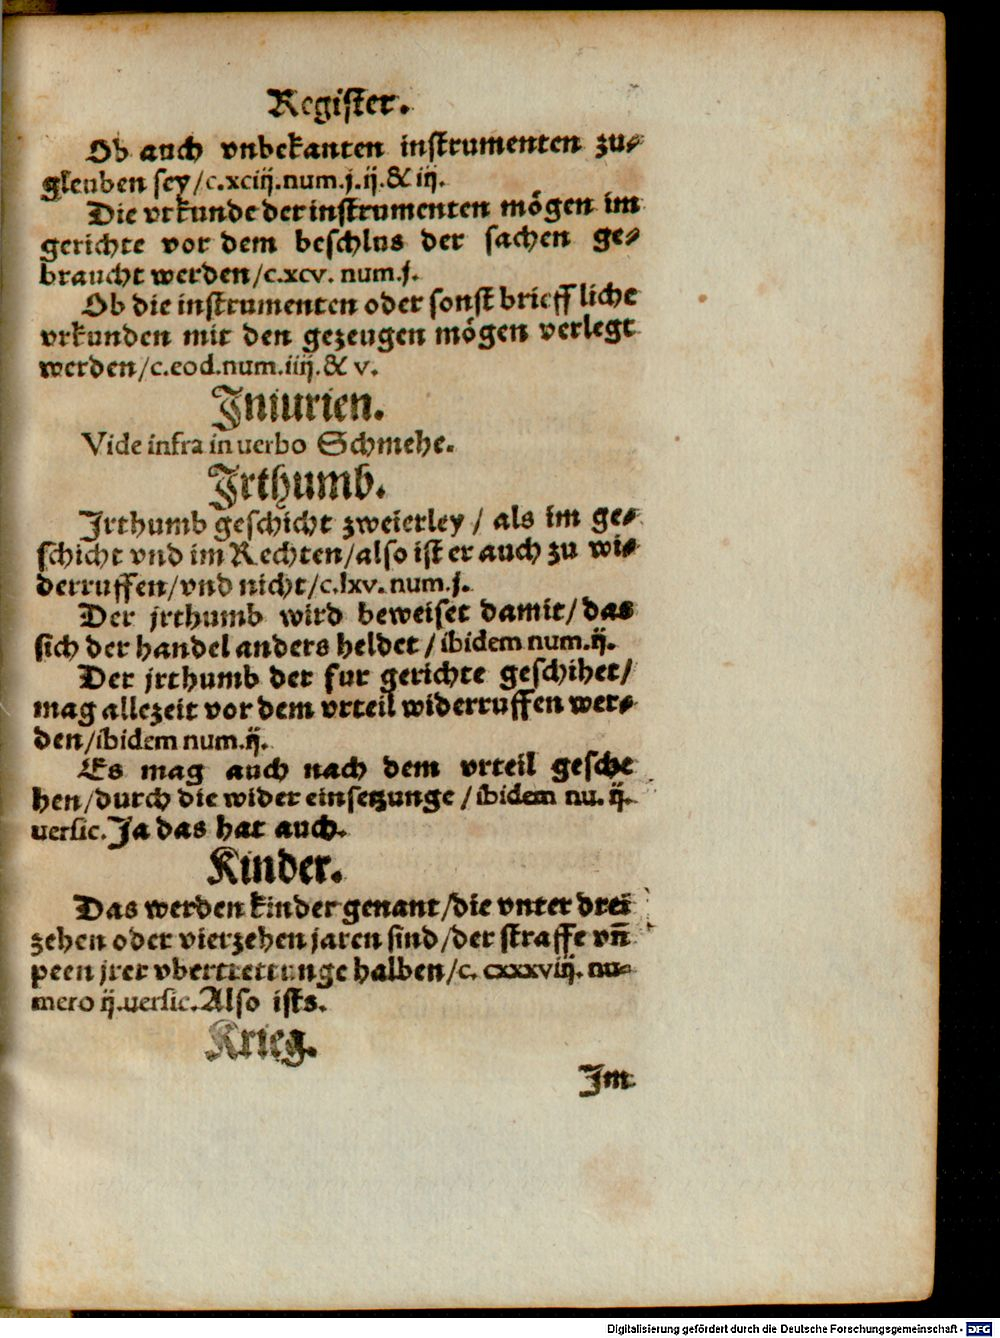 Register.
Ob auch vnbekanten instrumenten zu⸗
gleuben sey/c.xciij.num.j.ij.& iij.
Die vrkunde der instrumenten mögen im
gerichte vor dem beschlus der sachen ge⸗
braucht werden/c.xcv. num.j.
Ob die instrumenten oder sonst brieffliche
vrkunden mit den gezeugen mögen verlegt
werden/c.eod.num.iiij.& v.
Iniurien.
Vide infra in uerbo Schmehe.
Irthumb.
Irthumb geschicht zweierley / als im ge⸗
schicht vnd im Rechten/also ist er auch zu wi⸗
derruffen/vnd nicht/c.lxv.num.j.
Der jrthumb wird beweiset damit/das
sich der handel anders heldet / ibidem num.ij.
Der jrthumb der fur gerichte geschihet/
mag allezeit vor dem vrteil widerruffen wer⸗
den/ibidem num.ij.
Es mag auch nach dem vrteil gesche
hen/durch die wider einsetzunge / ibidem nu. ij.
uersic. Ja das hat auch.
Kinder.
Das werden kinder genant/die vnter drei
zehen oder vierzehen jaren sind/der straffe vñ
peen jrer vbertrettunge halben/c. cxxxviij. nu⸗
mero ij.uersic.Also ists.
Krieg.
Im
Digitalisierung gefördert durch die Deutsche Forschungsgemeinschaft - DFG